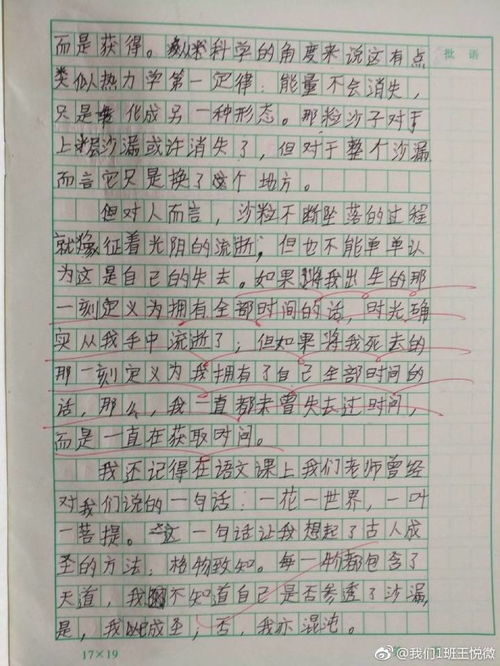 批语
而是获得。从科学的角度来说这有点
类似热力学第一定律：能量不会消失，
只是转化成另一种形态。那粒沙子对于
上层沙漏或许消失了，但对于整个沙漏
而言它只是换了个地方。
但对人而言，沙粒不断坠落的过程
就像征着光阴的流逝，但也不能单单认
为这是自己的失去。如果将我出生的那
一刻定义为拥有全部时间的话，时光确
实从我手中流逝了；但如果将我死去的
那一刻定义为我拥有了自己全部时间的
话，那么，我一直都未曾失去过时间，
而是一直在获取时间。
我还记得在语文课上我们老师曾经
对我们说的一句话：一花一世界，一叶
一菩提。这一句话让我想起了古人成
圣的方法：格物致知。每一物都包含了
天道，我不知道自己是否参透了沙漏，
是，我成圣，否，我亦混沌。
17×19
@我们1班王悦微